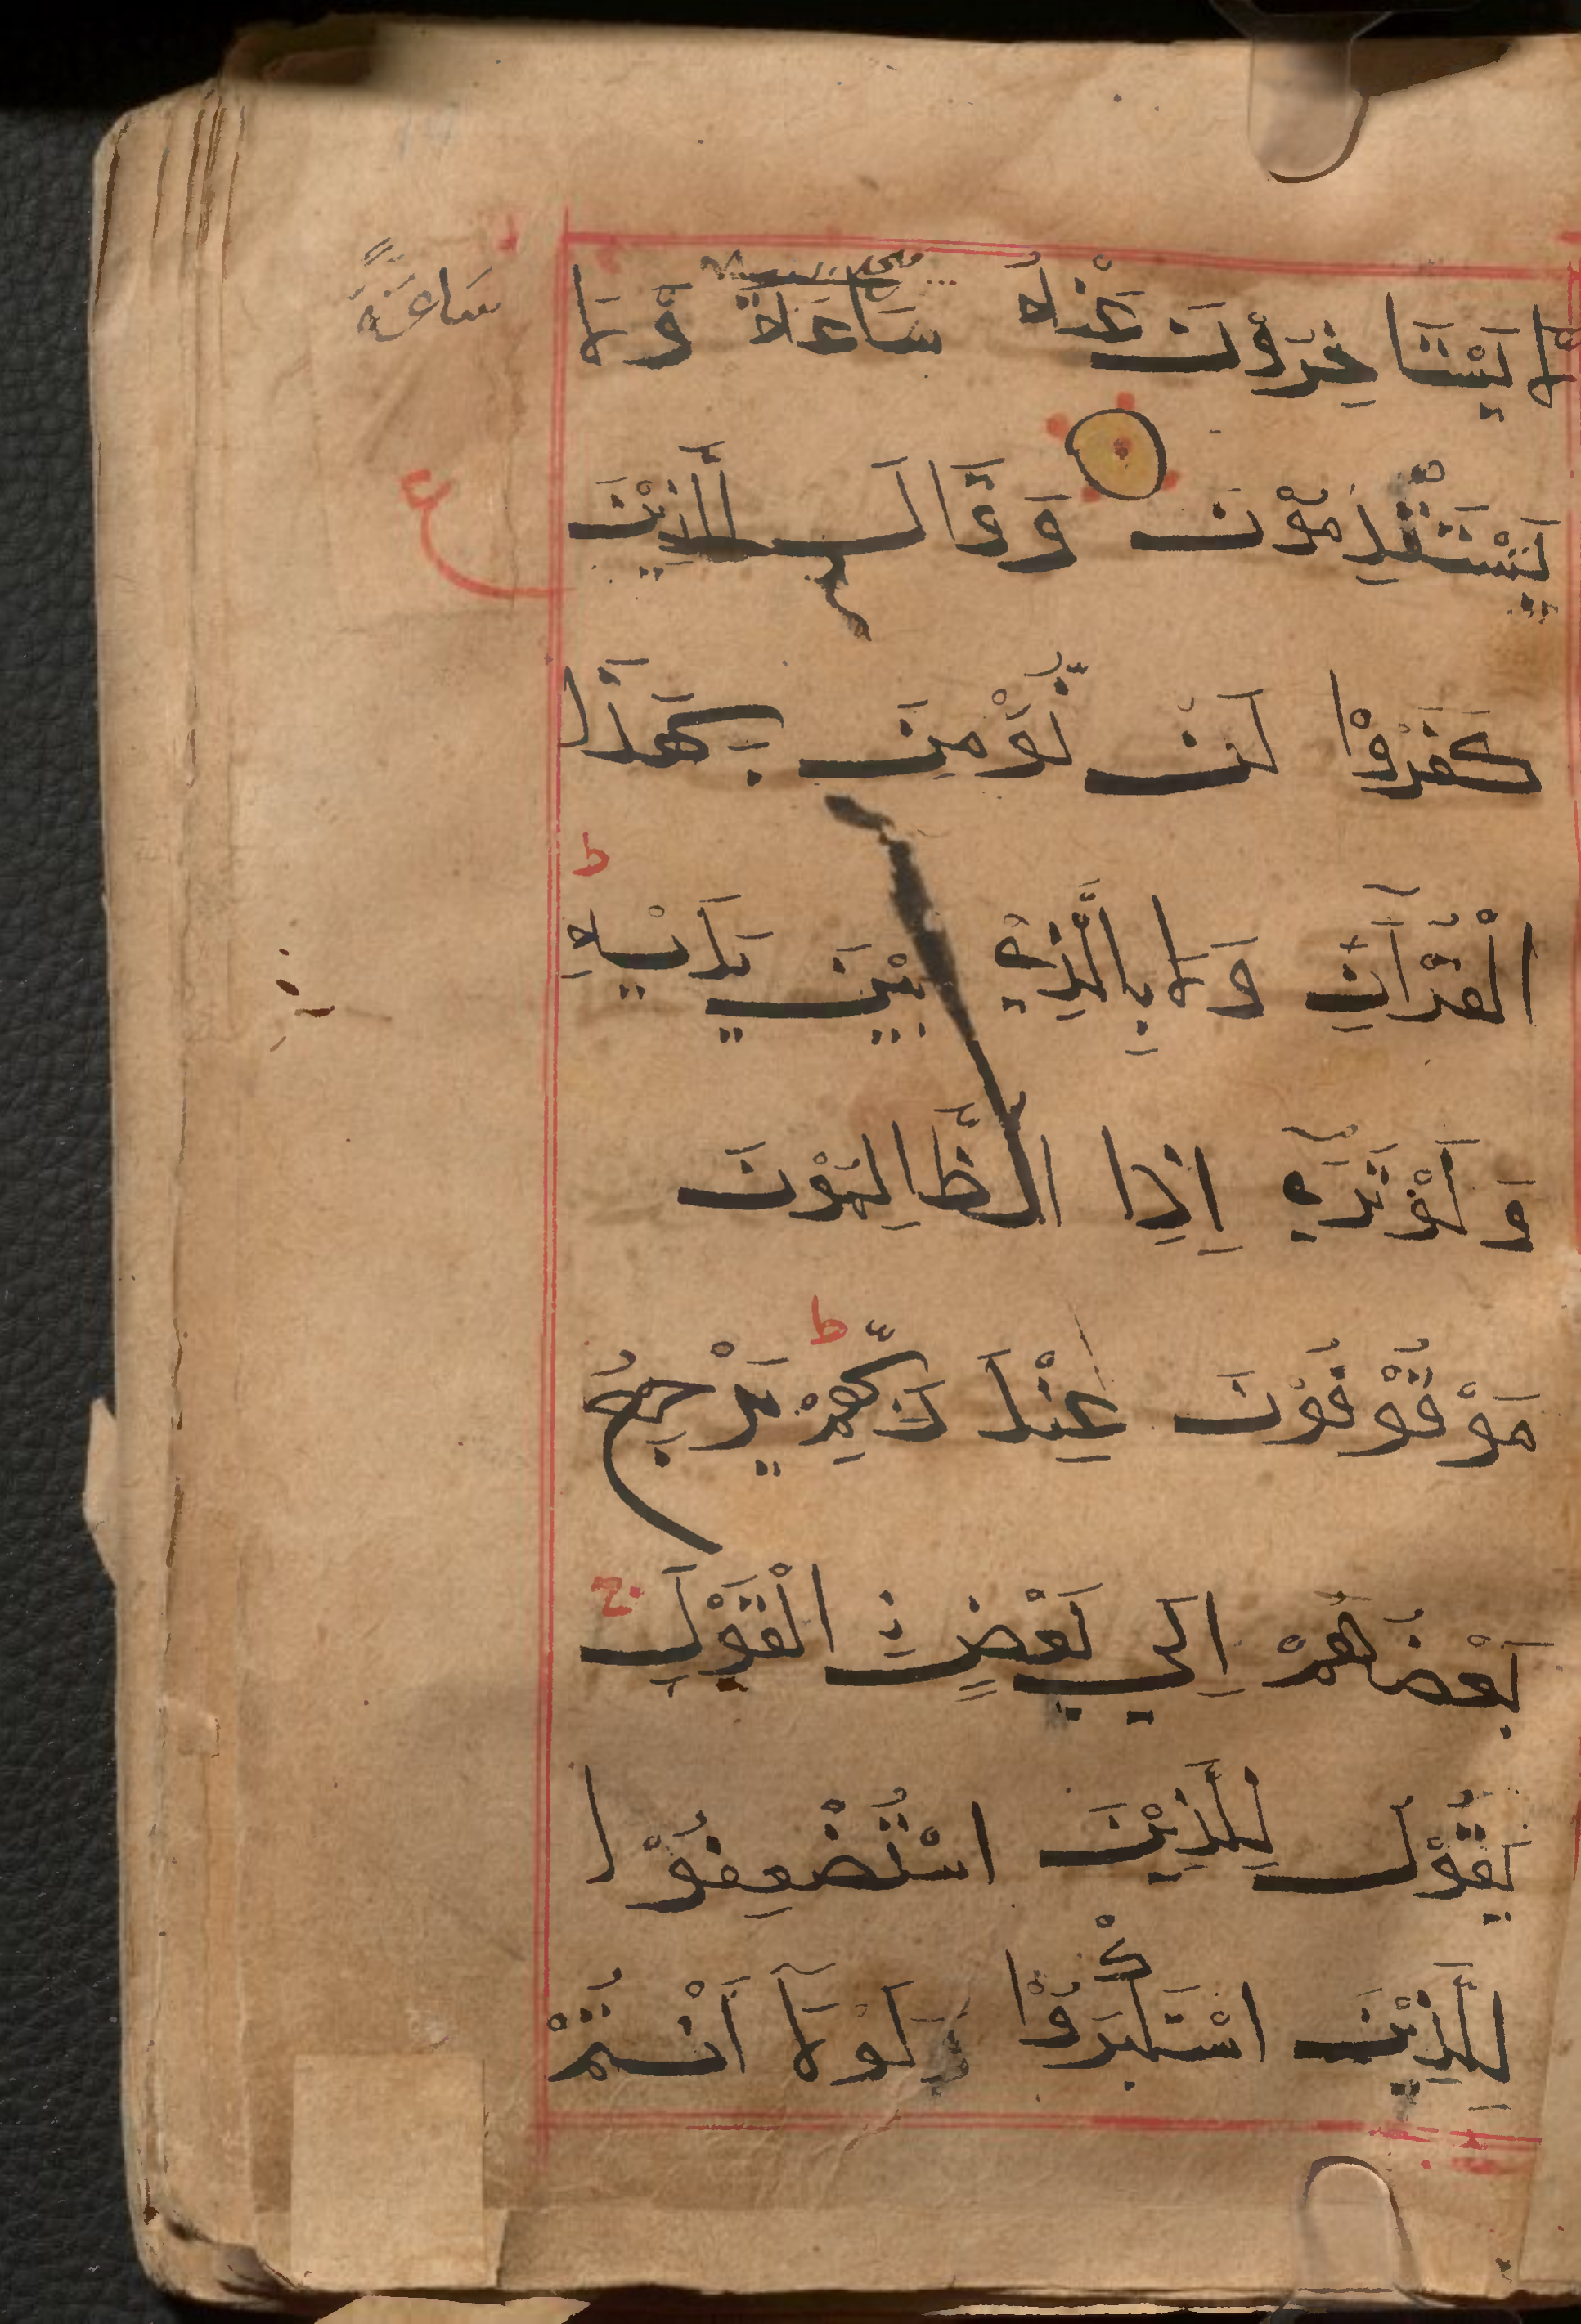 لَّا تَسْتَأْخِرُوْنَ عَنْهُ سَاعَةً وَّلَا
سَاعَةً
تَسْتَقْدِمُوْنَ وَقَالَ الَّذِيْنَ
ع
كَفَرُوْا لَنْ نُّؤْمِنَ بِهٰذَا
الْقُرْآنِ وَلَا بِالَّذِيْ بَيْنَ يَدَيْهِ ط
وَلَوْ تَرٰٓي اِذِ الظَّالِمُوْنَ
مَوْقُوْفُوْنَ عِنْدَ رَبِّهِمْ ط يَرْجِعُ
بَعْضُهُمْ اِلٰي بَعْضٍ نِ الْقَوْلَ ج
يَقُوْلُ الَّذِيْنَ اسْتُضْعِفُوْا
لِلَّذِيْنَ اسْتَكْبَرُوْا لَوْلَآ اَنْتُمْ